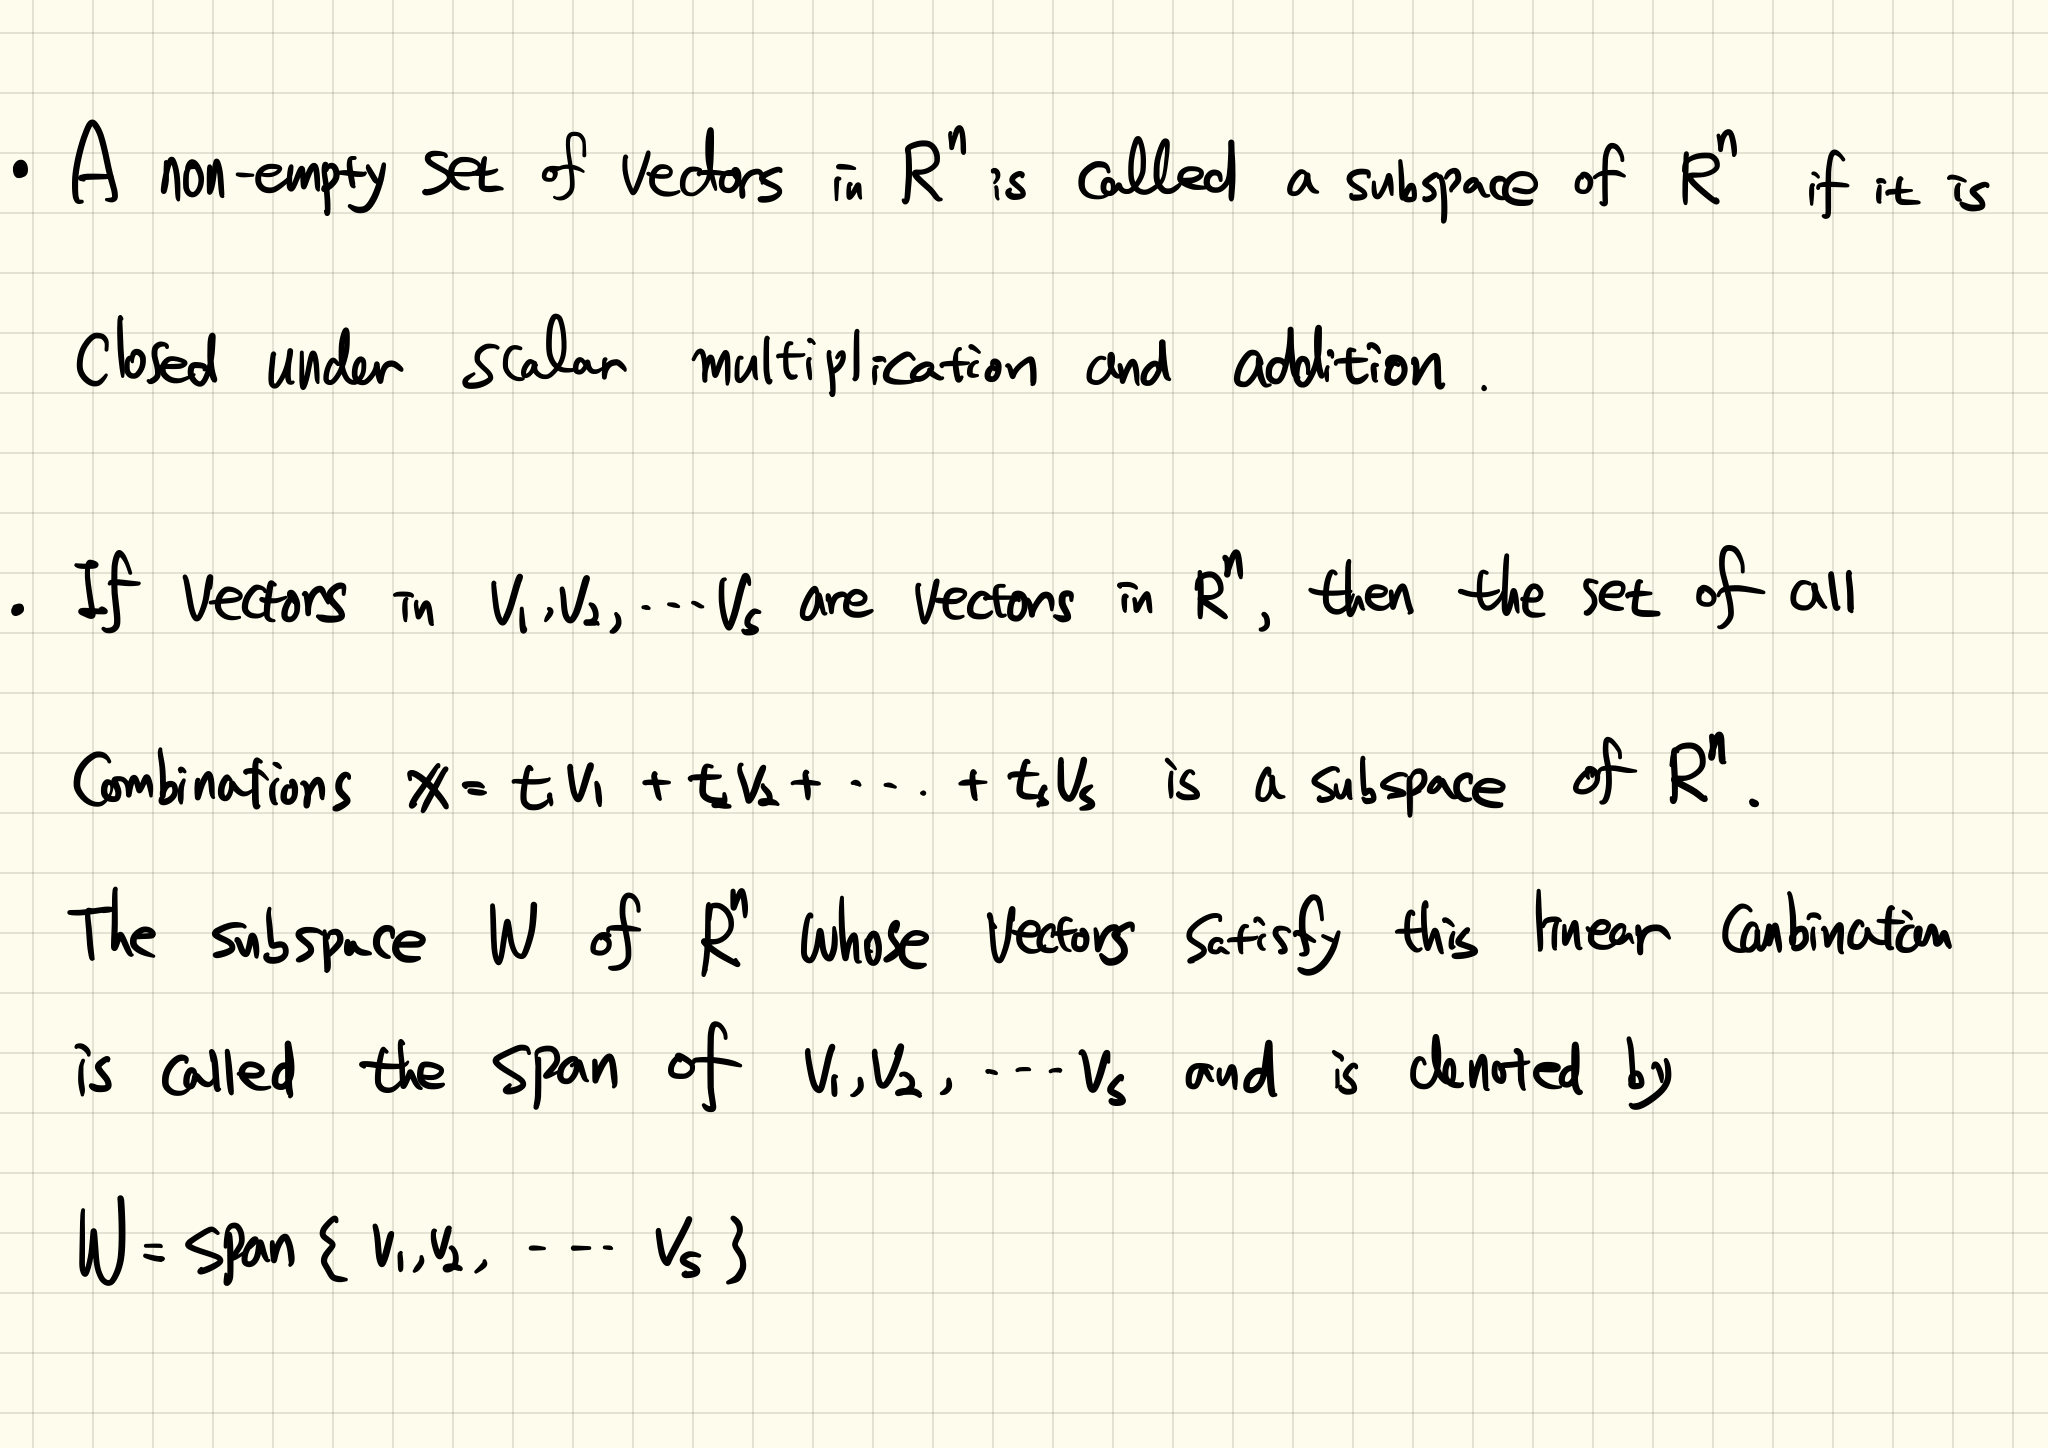 • A non-empty set of vectors in Rⁿ is called a subspace of Rⁿ if it is
Closed under scalar multiplication and addition.
• If vectors in V₁,V₂, ···· Vₛ are vectors in Rⁿ, then the set of all
Combinations 𝕏 = t₁V₁ + t₂V₂ + ···· + tₛVₛ is a subspace of Rⁿ.
The subspace W of Rⁿ whose vectors satisfy this linear Combination
is called the span of V₁,V₂, ···· Vₛ and is denoted by
W = span { V₁,V₂, ···· Vₛ }